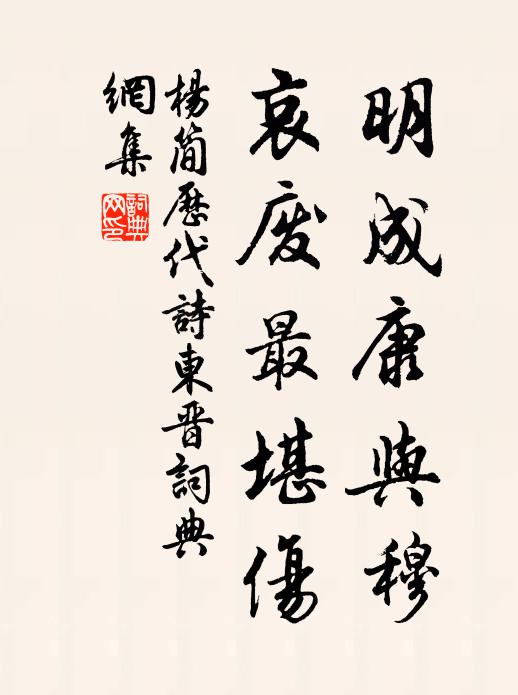 明成康與穆
哀废最堪傷
楊简歷代詩東晋詞典
網集
詞典
网印